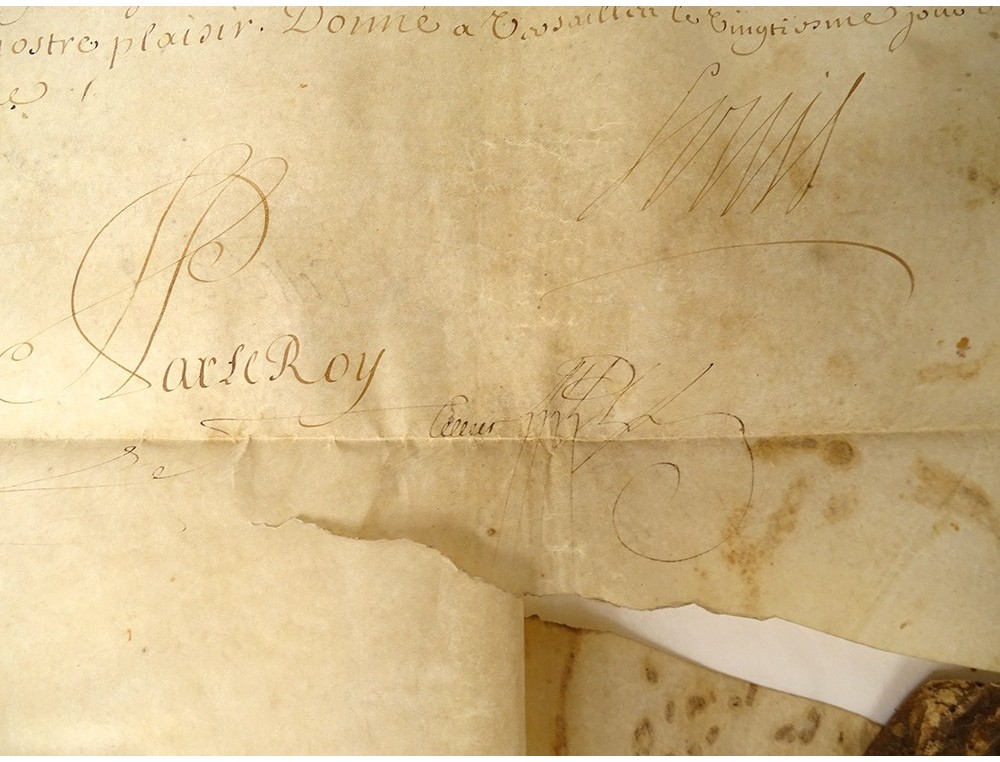 nostre plaisir. Donné a Versailles le Vingtiesme jour
Louis
Par le Roy